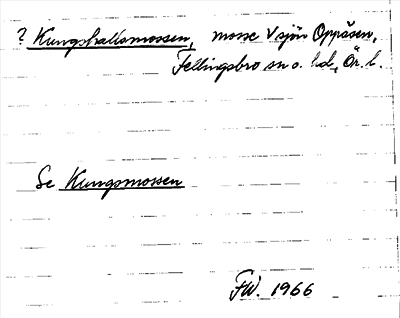 ? Kungshallamossen, mosse V sjön Oppåsen,
Fellingsbro sn o. hd, Ör. l.
Se Kungsmossen
FW. 1966